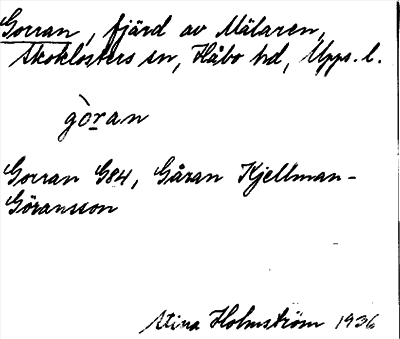 Gorran, fjärd av Mälaren,
Skoklosters sn, Håbo hd, Upps. l.
gòran
Gorran G84, Gåran Kjellman-
Göransson
Stina Holmström 1936